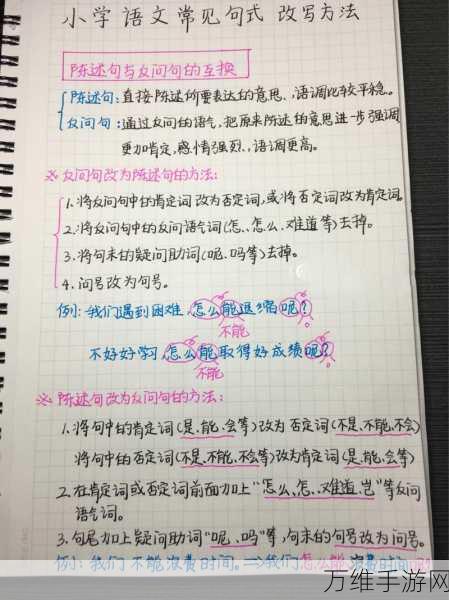 小学语文常见句式 改写方法
陈述句与反问句的互换
陈述句:直接陈述所要表达的意思、语调比较平稳。
反问句:通过反问的语气,把原来陈述的意思进一步强调
更加肯定,感情强烈、语调更高。
※反问句改为陈述句的方法:
1.将反问句中的肯定词改为否定词,或将否定词改为肯定词
2.将反问句中的反问语气词(怎、怎么、难道等)去掉。
3.将句末的疑问助词(呢、吗等)去掉。
4.问号改为句号。
例:我们遇到困难,怎么能退缩呢?
不能
不好好学习,怎么能取得好成绩呢?
不能
※陈述句改为反问句的方法:
1.将句中的肯定词(是、能、会等)改为否定词(不是、不能、不会)
将句中的否定词(不是、不能、不会等)改为肯定词(是、能、会等)
2.在肯定词或否定词前面加上"怎么、怎、难道、岂"等反问
语气词。
3.句尾加上疑问助词"呢、吗"等,句末的句号改为问号。
例:我们不能浪费时间。⇒我们怎么能浪费时间呢?
万维手游网